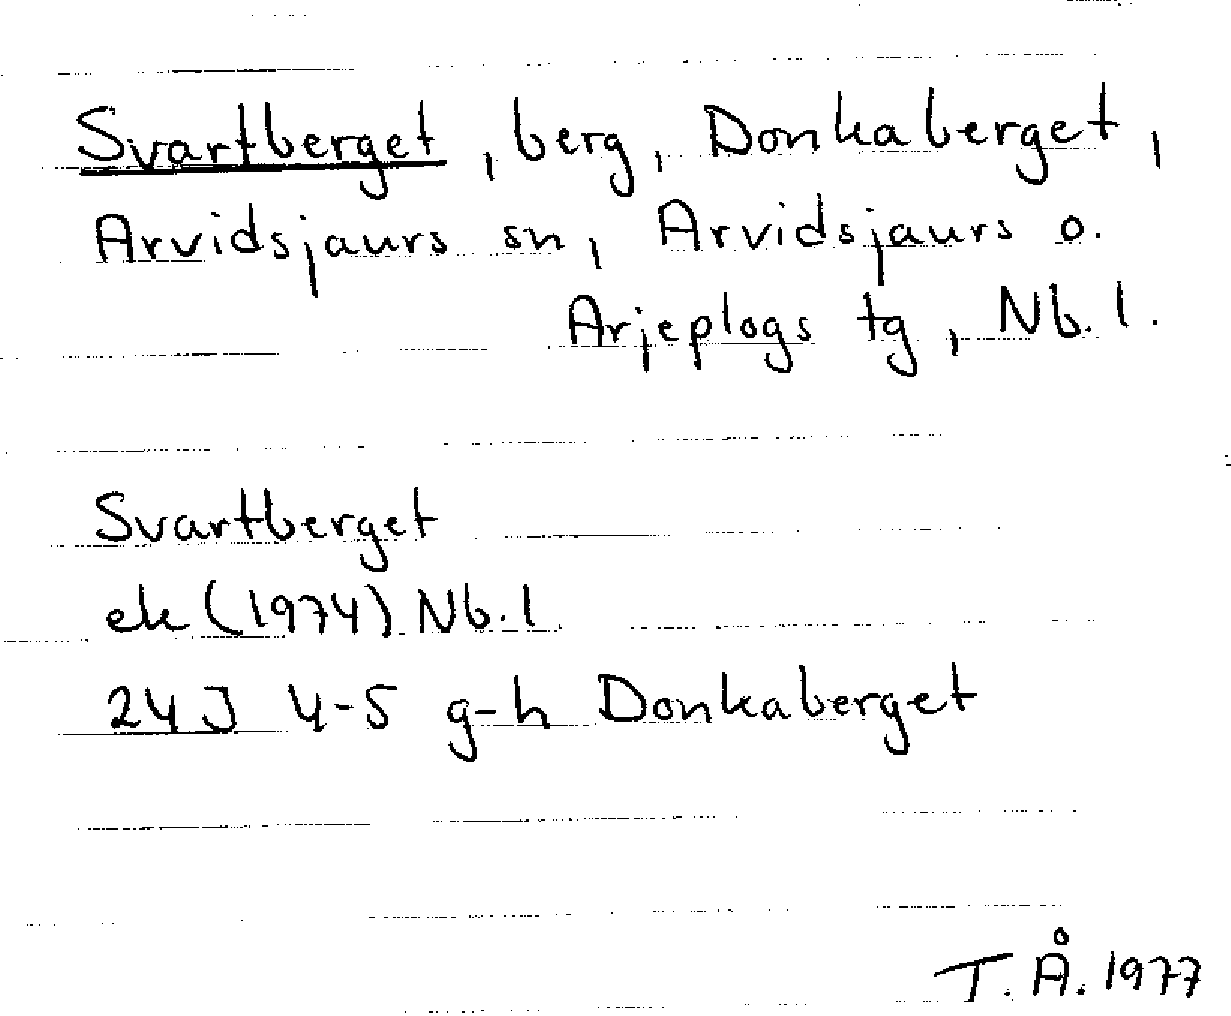 Svartberget, berg, Donkaberget,
Arvidsjaurs sn, Arvidsjaurs o.
Arjeplogs tg, Nb. l.
Svartberget
ek (1974) Nb. l
24J 4-5 g-h Donkaberget
T. Å. 1977